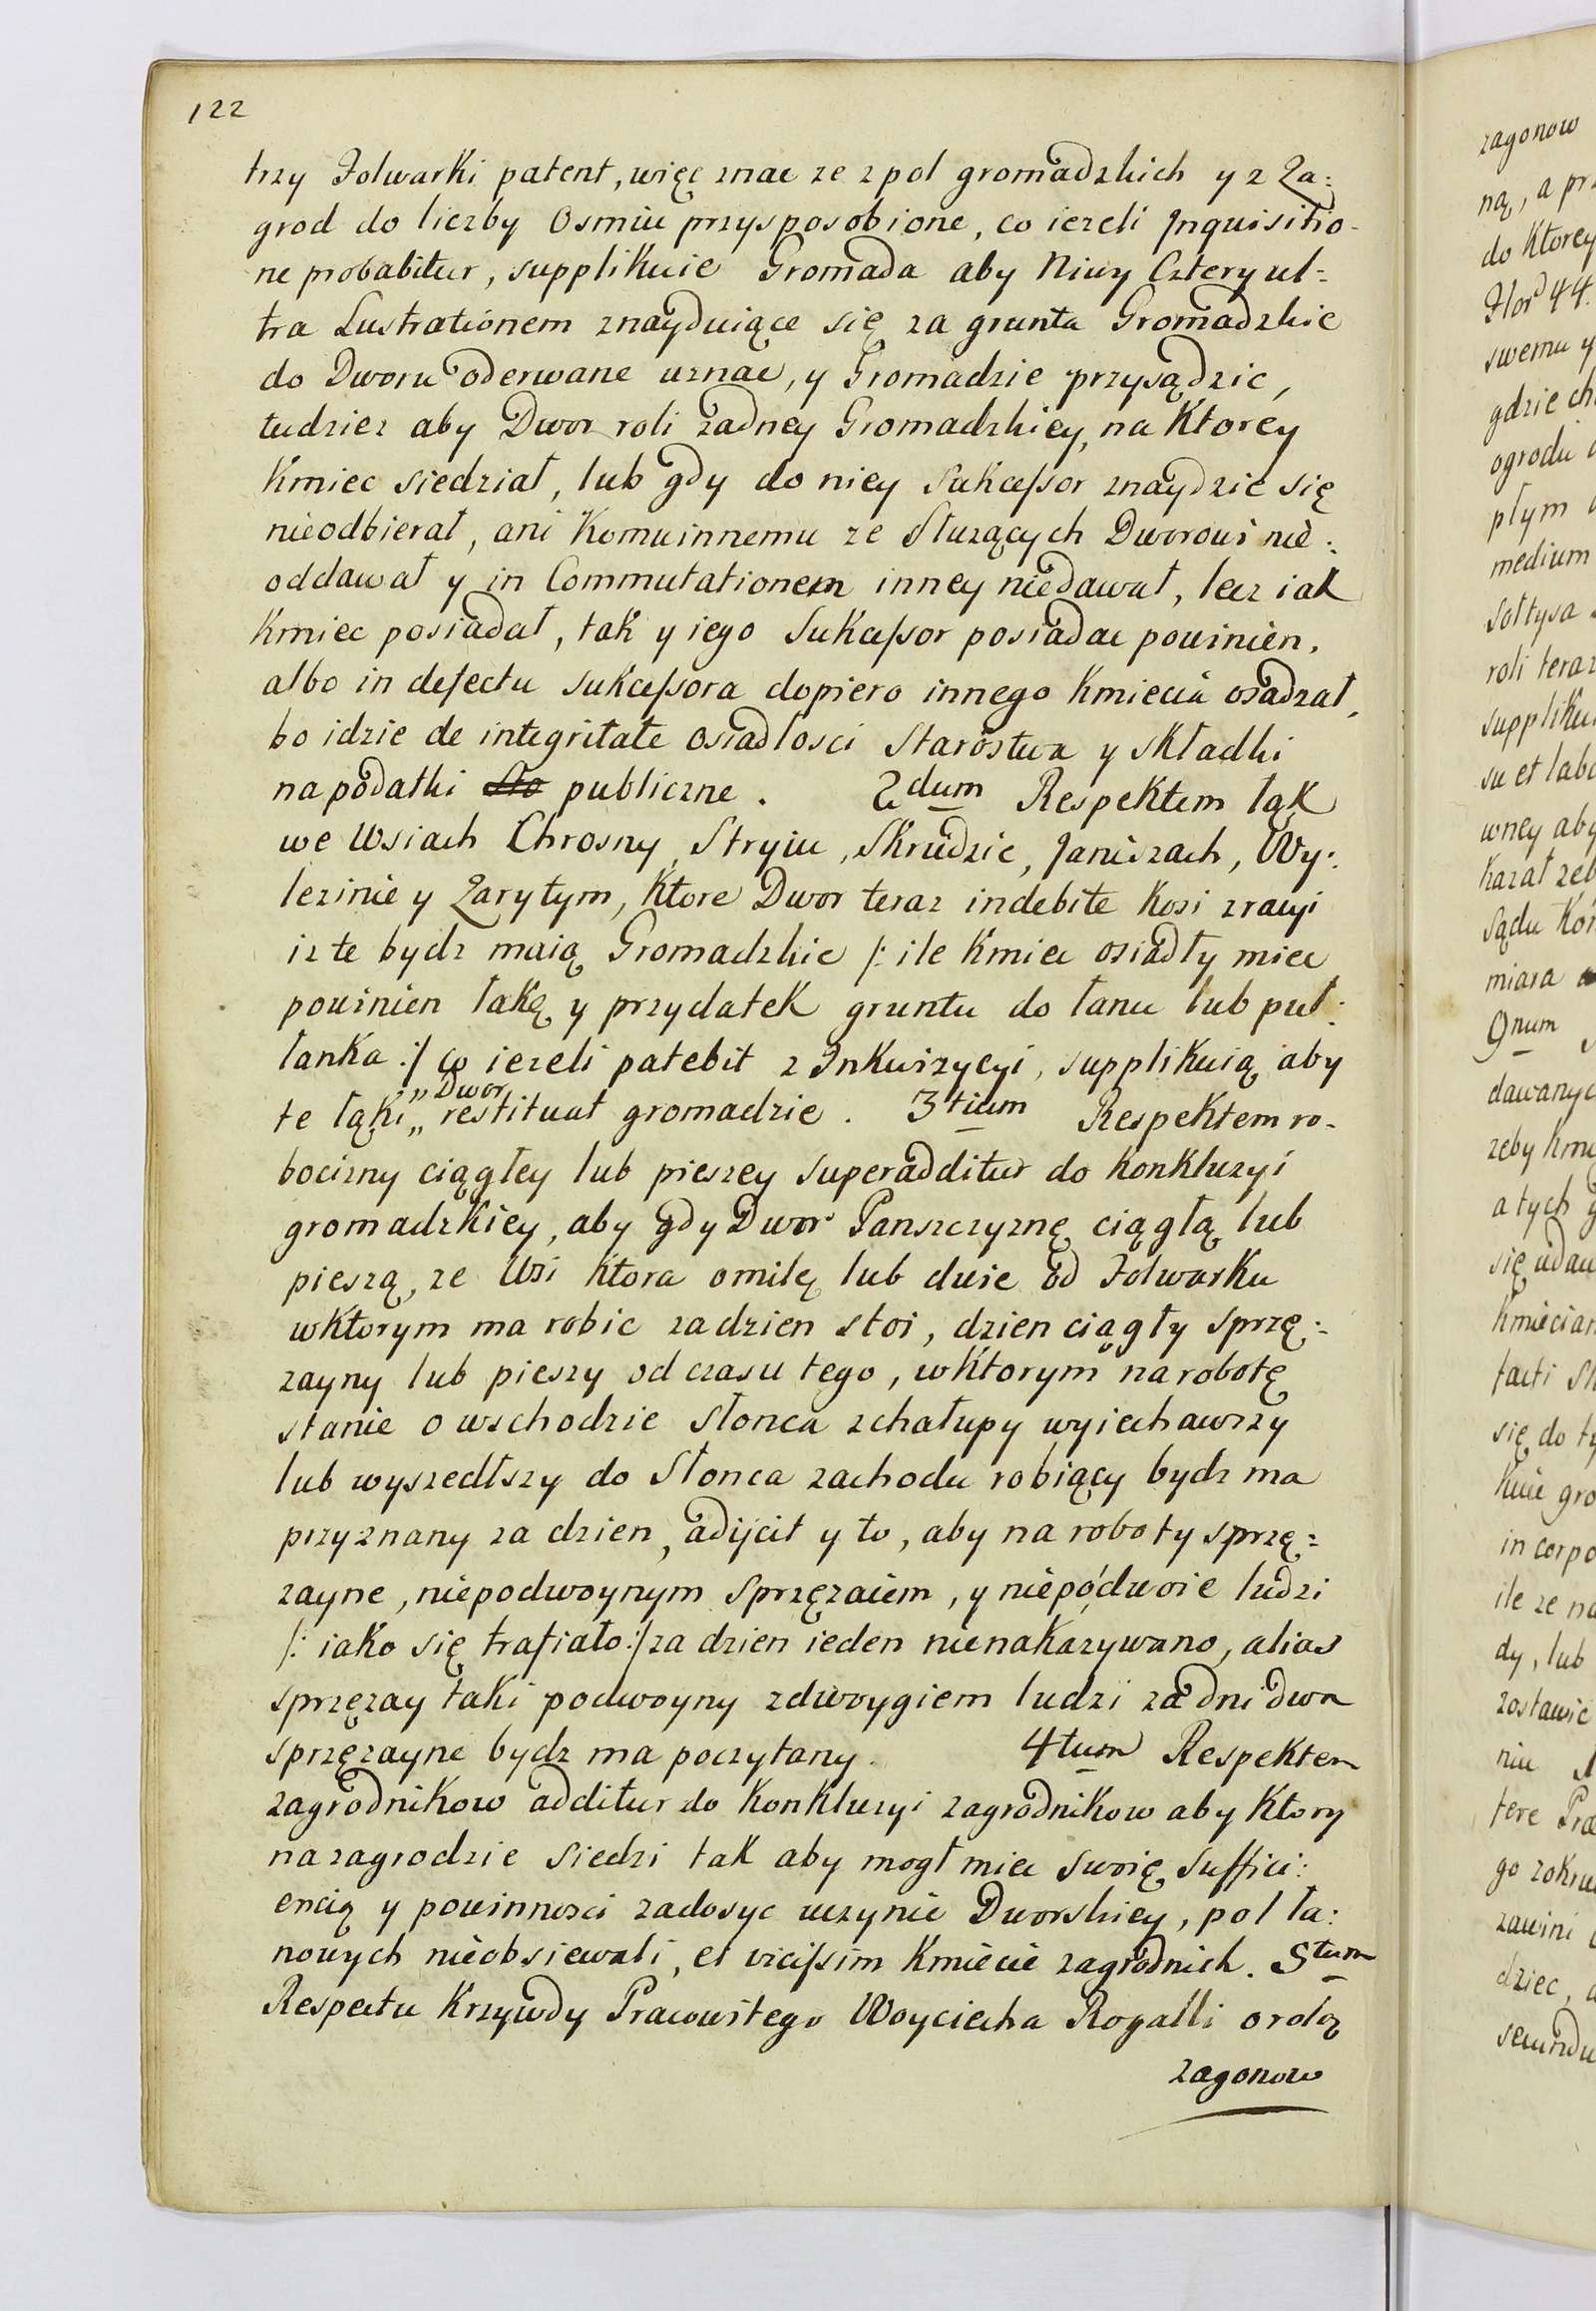 122
trzy Folwarki patent, więc znac ze z pol gromadzkich y z Za:
grod do liczby Osmiu przysposobione, co iezeli Jnquisitio-
ne probabitur, supplikuie Gromada aby Niwy Cztery ul=
tra Lustrationem znayduiące się za grunta Gromadzkie
do Dworu oderwane uznac, y Gromadzie przysądzic,
tudziez aby Dwor roli zadney Gromadzkiey, na Ktorey
Kmiec siedział, lub gdy do niey Sukcessor znaydzie się
nieodbierał, ani Komuinnemu ze Służących Dworowi nie:
oddawał y in Commutationem inney niedawał, lecz iak
Kmiec posiadał, tak y iego Sukcessor posiadac powinien,
albo in defectu sukcessora dopiero innego Kmiecia osadzał,
bo idzie de integritate osiadłosci Starostwa y składki
na podatki publiczne. 2dum Respektem łąk
we Wsiach Chrosny, Stryiu, Skrudzie, Janiszach, Wy:
lezinie y Zarytym, Ktore Dwor teraz indebite Kosi zracyi
iz te bydz maią Gromadzkie /: ile Kmiec osiadły miec
powinien łąkę y przydatek gruntu do łanu lub puł:
łanka :/ co iezeli patebit z Jnkwizycyi, supplikuią aby
te łąki „Dwor„ restituat gromadzie. 3tium Respektem ro-
bocizny ciągłey lub pieszey superadditur do Konkluzyi
gromadzkiey, aby gdy Dwor Panszczyznę ciągłą lub
pieszą, ze Wsi ktora omilę lub dwie od Folwarku
wktorym ma robic zadzien stoi, dzien ciągły sprzę:
zayny lub pieszy od czasu tego, wktorym na robotę
stanie o wschodzie Słonca zchałupy wyiechawszy
lub wyszedłszy do Słonca zachodu robiący bydz ma
przyznany za dzien, adijcit y to, aby na roboty sprzę=
zayne, niepodwoynym sprzęzaiem, y niepódwoie ludzi
/: iako się trafiało :/ za dzien ieden nienakazywano, alias
sprzęzay taki podwoyny zdwoygiem ludzi za dni dwa
sprzęzayne bydz ma poczytany. 4tum Respektem
zagrodnikow additur do Konkluzyi zagrodnikow aby Ktory
na zagrodzie siedzi tak aby mogł miec swoię suffici:
encią y powinnosci zadosyc uczynic Dworskiey, pol ła:
nowych nieobsiewali, et vicissim Kmiecie zagrodnich. 5tum
Respectu Krzywdy Pracowitego Woyciecha Rogalli o rolą
zagonow
zagonow
ną, a
do Ktorey
swemu y
gdzie
ogrodu
płym
medium
Sołtysa
roli teraz
su et
wney aby
Kazał
Sądu
miara
9num
zeby
a tych
się
się do
ile ze
dy, lub
zostawic
niu
fere
go
zawini
dziec,